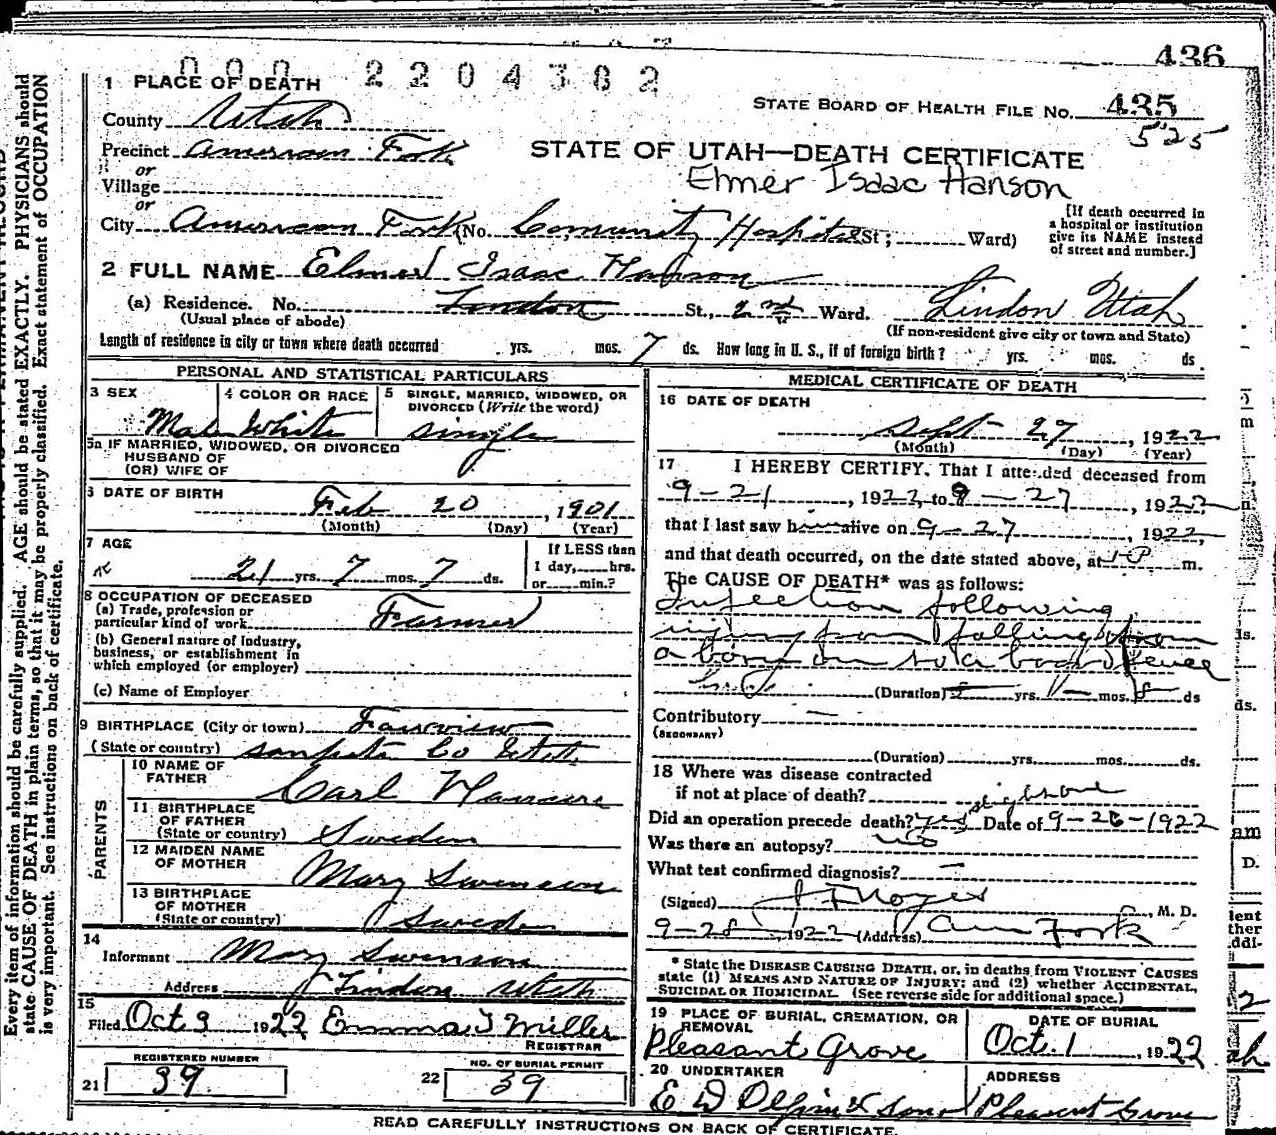 436
000 2204382
1 PLACE OF DEATH
STATE BOARD OF HEALTH FILE NO. 435
525
County Utah
Precinct American Fork
STATE OF UTAH—DEATH CERTIFICATE
or
Elmer Isaac Hanson
Village
or
City American Fork (No. Community Hospital St; Ward)
[If death occurred in a hospital or institution give its NAME instead of street and number.]
2 FULL NAME Elmer Isaac Hanson
(a) Residence. No. Lindon St., 2nd Ward. Lindon Utah
(Usual place of abode)
(If non-resident give city or town and State)
Length of residence in city or town where death occurred yrs. mos. 7 ds. How long in U. S., if of foreign birth? yrs. mos. ds
PERSONAL AND STATISTICAL PARTICULARS
3 SEX
4 COLOR OR RACE
5 SINGLE, MARRIED, WIDOWED, OR DIVORCED (Write the word)
Male White single
5a IF MARRIED, WIDOWED, OR DIVORCED
HUSBAND OF
(OR) WIFE OF
6 DATE OF BIRTH
Feb 20, 1901
(Month) (Day) (Year)
7 AGE
21 yrs. 7 mos. 7 ds.
If LESS then
1 day, hrs.
or min.?
8 OCCUPATION OF DECEASED
(a) Trade, profession or
particular kind of work Farmer
(b) General nature of industry,
business, or establishment in
which employed (or employer)
(c) Name of Employer
9 BIRTHPLACE (City or town) Fairview
(State or country) Sanpete Co Utah
PARENTS
10 NAME OF
FATHER Carl
11 BIRTHPLACE
OF FATHER
(State or country) Sweden
12 MAIDEN NAME
OF MOTHER Mary Swenson
13 BIRTHPLACE
OF MOTHER
(State or country) Sweden
14
Informant Mary Swenson
Address Lindon Utah
15
Filed Oct 9 1922 Emma J Miller
REGISTRAR
REGISTERED NUMBER
21 39
NO. OF BURIAL PERMIT
22 39
MEDICAL CERTIFICATE OF DEATH
16 DATE OF DEATH
Sept 27, 1922
(Month) (Day) (Year)
17 I HEREBY CERTIFY, That I attended deceased from
9-21, 1922, to 9-27, 1922
that I last saw h alive on 9-27, 1922,
and that death occurred, on the date stated above, at m.
The CAUSE OF DEATH* was as follows:
Infection following
injury from falling from
a on to a board fence
(Duration) yrs. mos. 8 ds
Contributory —
(SECONDARY)
(Duration) yrs. mos. ds.
18 Where was disease contracted
if not at place of death?
Did an operation precede death? yes Date of 9-26-1922
Was there an autopsy? no
What test confirmed diagnosis? —
(Signed) J F Noyes, M. D.
9-28, 1922 (Address) Am Fork
* State the DISEASE CAUSING DEATH, or, in deaths from VIOLENT CAUSES
state (1) MEANS AND NATURE OF INJURY; and (2) whether ACCIDENTAL,
SUICIDAL OR HOMICIDAL. (See reverse side for additional space.)
19 PLACE OF BURIAL, CREMATION, OR
REMOVAL
Pleasant Grove
DATE OF BURIAL
Oct. 1, 1922
20 UNDERTAKER
ADDRESS
E D Olpin & Sons Pleasant Grove
READ CAREFULLY INSTRUCTIONS ON BACK OF CERTIFICATE.
Every item of information should be carefully supplied. AGE should be stated EXACTLY. PHYSICIANS should
state CAUSE OF DEATH in plain terms, so that it may be properly classified. Exact statement of OCCUPATION
is very important. See instructions on back of certificate.